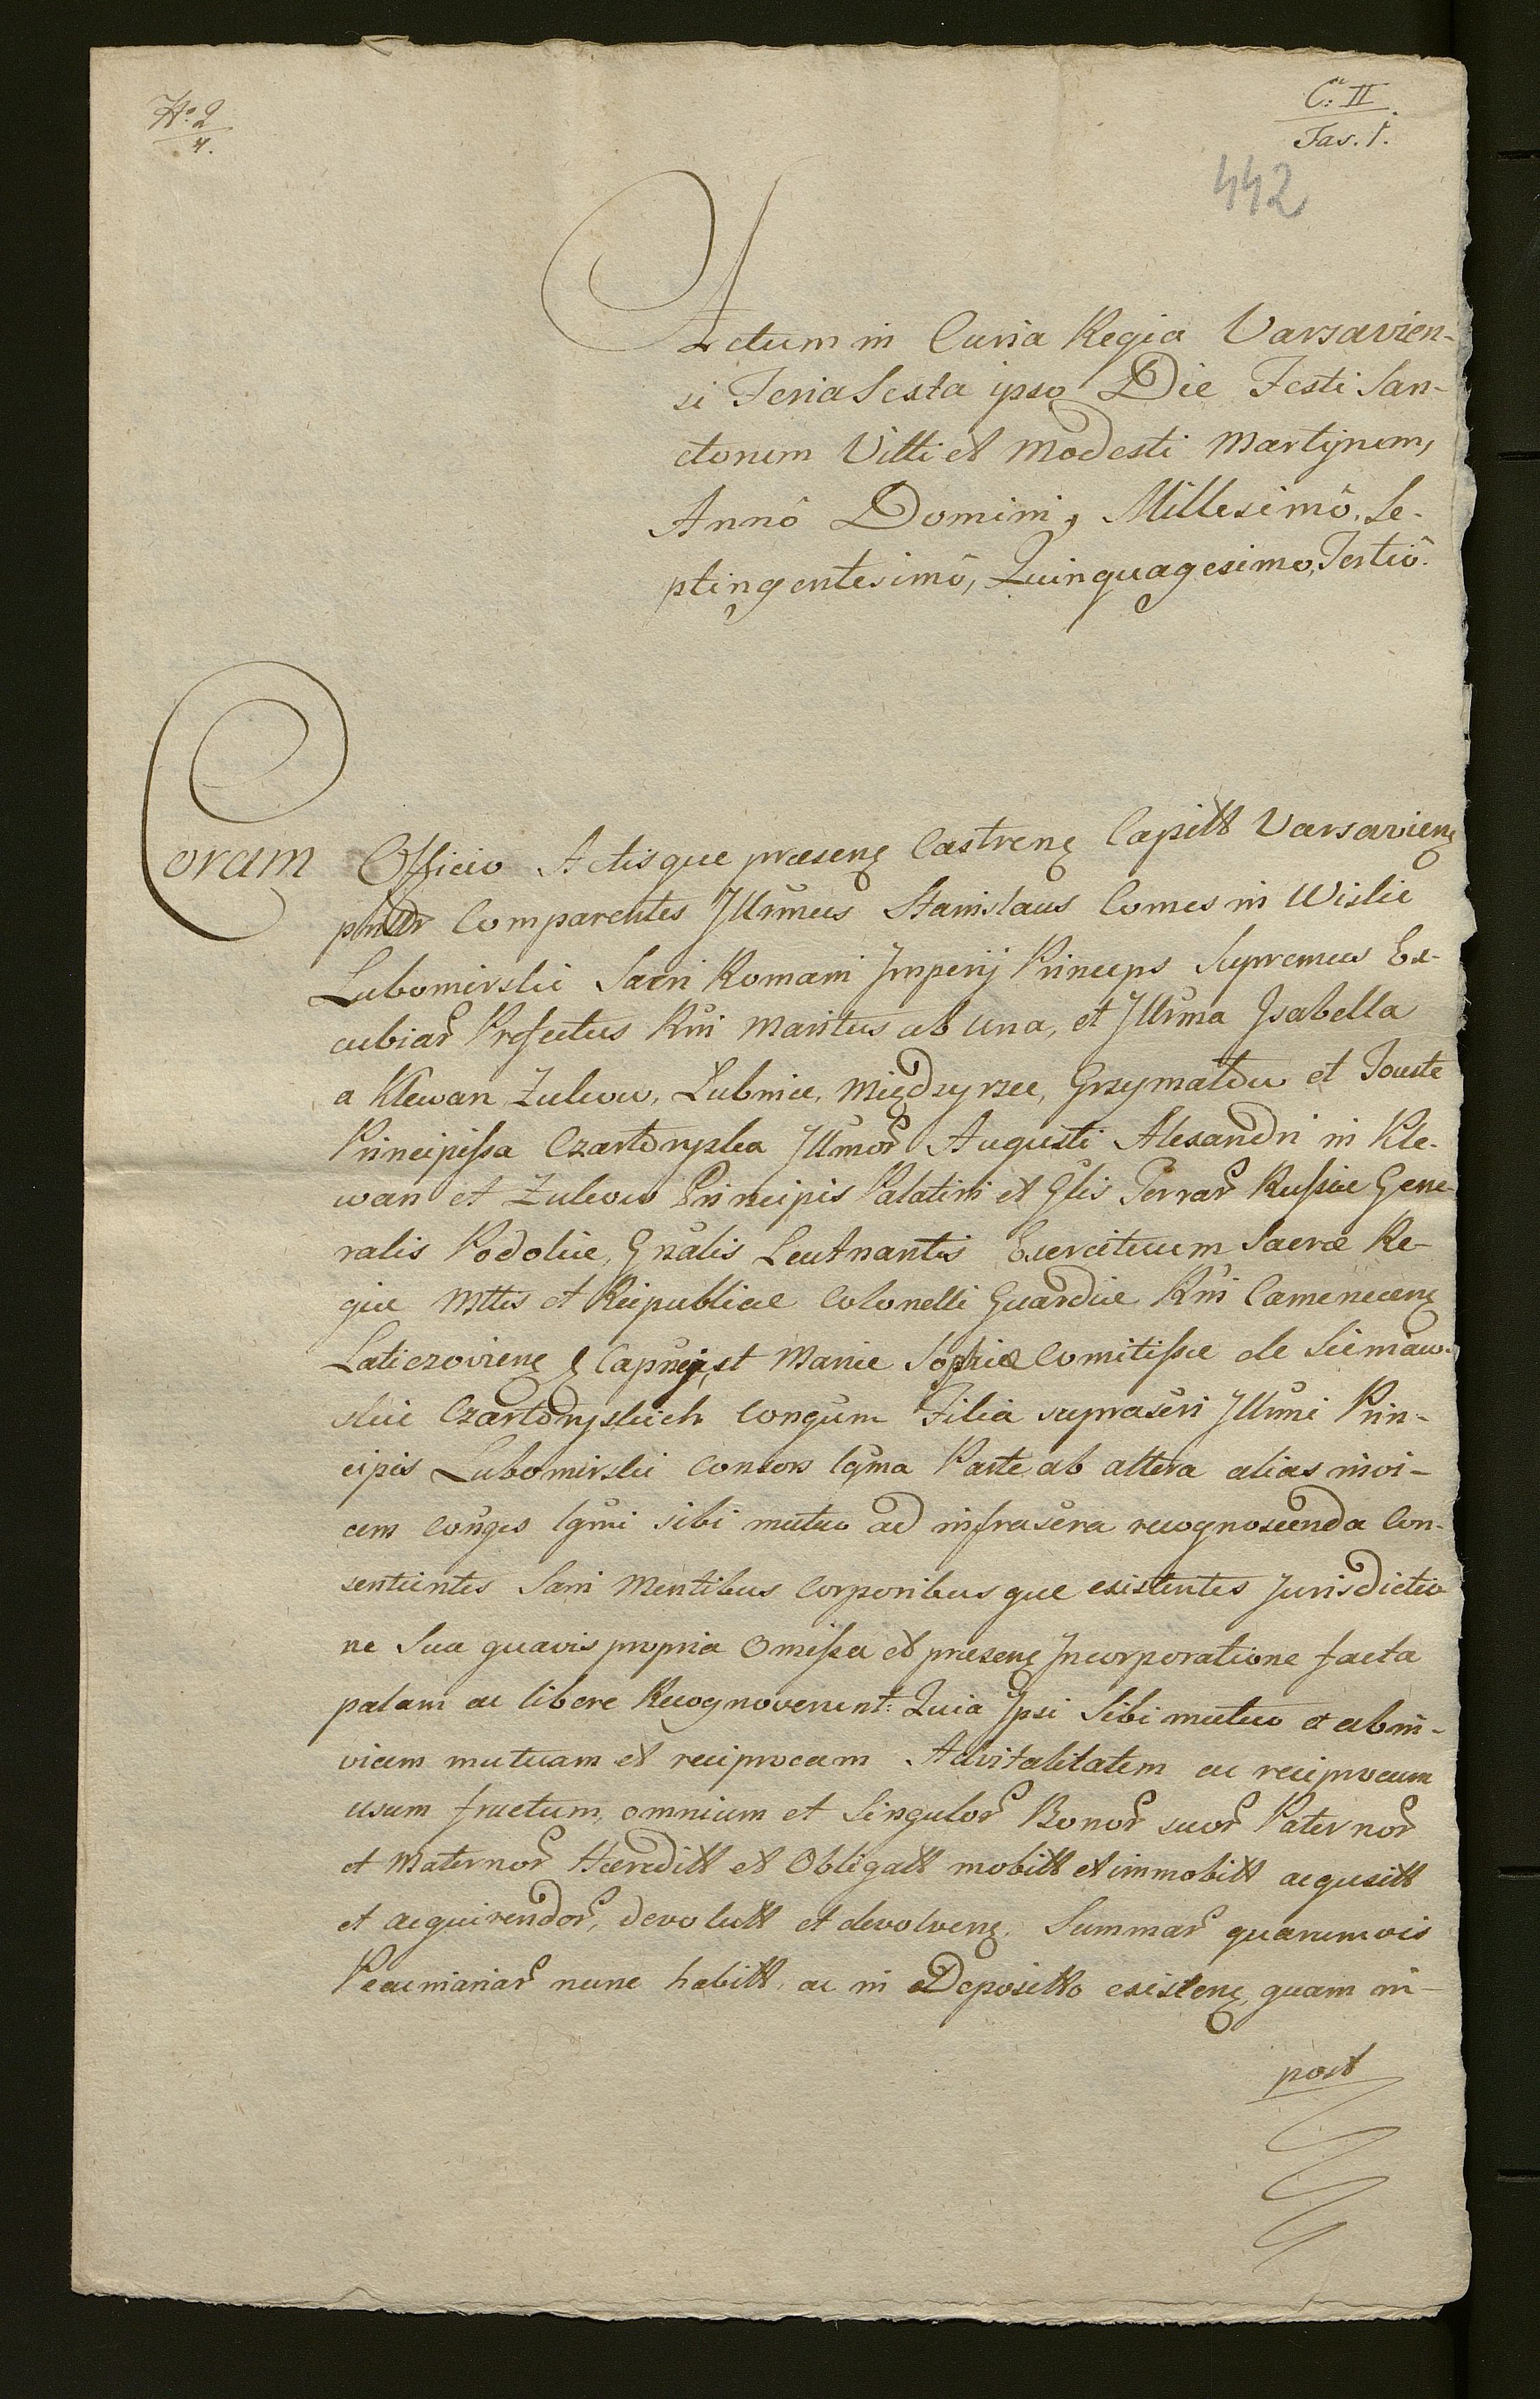 No. 2
4.
C: II
Fas. 1.
442
Actum in Curia Regia Varsavien-
si Feria Sexta ipso Die Festi San-
ctorum Vitti et Modesti Martyrum,
Annô Domini, Millesimô, Se-
ptingentesimô, Quinquagesimo, Tertiô.
Coram Officio Actisque præsenę Castrenę Capitt Varsavienę
Comparentes Jllrmus Stanislaus Comes in Wislic
Lubomirski Sacri Romani Jmperij Princeps Supremus Ex-
cubiar Prefectus Rni Maritus ab una, et Jllrma Jsabella
a Klewan Zukow, Lubnice, Międzyrzec, Grzymałow et Touste
Principissa Czartoryska Jllmor Augusti Alexandri in Kle-
wan et Zukow Principis Palatini et Glis Terrar Russiæ Gene-
ralis Podoliæ, Gnalis Leutnantis Exercituum Sacræ Re-
giæ Mttis et Reipublicæ Colonelli Guardiæ Rni Camenecenę
Laticzovienę et Mariæ Sophiæ Comitissæ de Sieniaw-
skie Czartoryskich Congum Filia suprascri Jllrmi Prin-
cipis Lubomirski consors lgma Parte ab altera alias invi-
cem conges lgmi sibi mutuo ad infrascra recognoscenda Con-
sentientes Sani Mentibus Corporibusque existentes Jurisdictio
ne Sua quavis propria Omissa et præsenę Jncorporatione facta
palam ac libere Recognoverunt: Quia Jpsi Sibi mutuo et ab in-
vicem mutuam et reciprocam Advitalitatem ac reciprocum
usum fructum, omnium et Singulor Bonor suor Paternor
et Maternor Hæreditt et Obligatt mobitt et immobitt acquisitt
et acquirendor, devolutt et devolvenę. Summar quarumvis
Pecuniariar nunc habitt, ac in Depositto existenę, quam in-
post